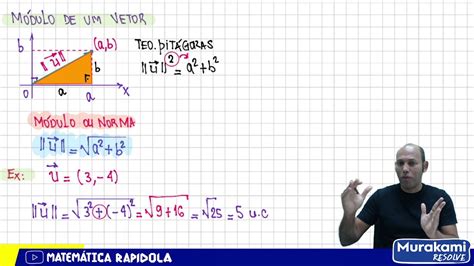 MÓDULO DE UM VETOR
b
(a,b)
||u⃗||
b
0
a
a
x
TEO. PITÁGORAS
||u⃗||² = a² + b²
MÓDULO OU NORMA
||u⃗|| = √a² + b²
Ex: u⃗ = (3, -4)
||u⃗|| = √3² + (-4)² = √9 + 16 = √25 = 5 u.c
MATEMÁTICA RAPIDOLA
Murakami
RESOLVE